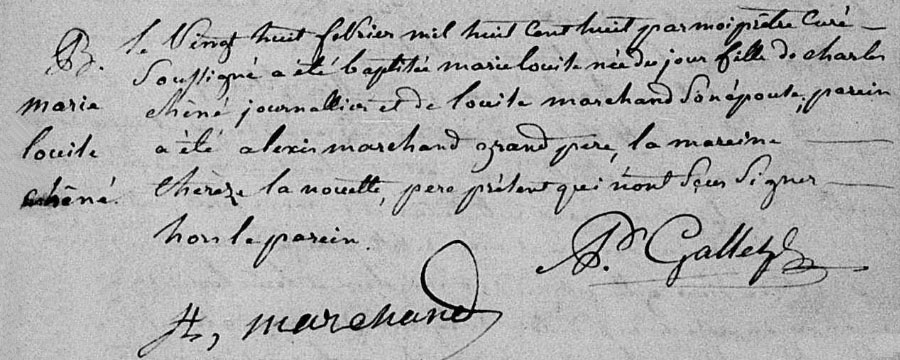 B.
marie
louise
chêné.
le Vingt huit février mil huit cent huit par moi prêtre curé
Soussigné a été baptisée marie louise née du jour fille de charles
chêné journallier et de louise marchand son épouse, parein
a été alexis marchand grand pere, la mareine
thérèze la nouette, pere présent qui n'ont sçeu signer
hors le parein.
Galletz
marchand